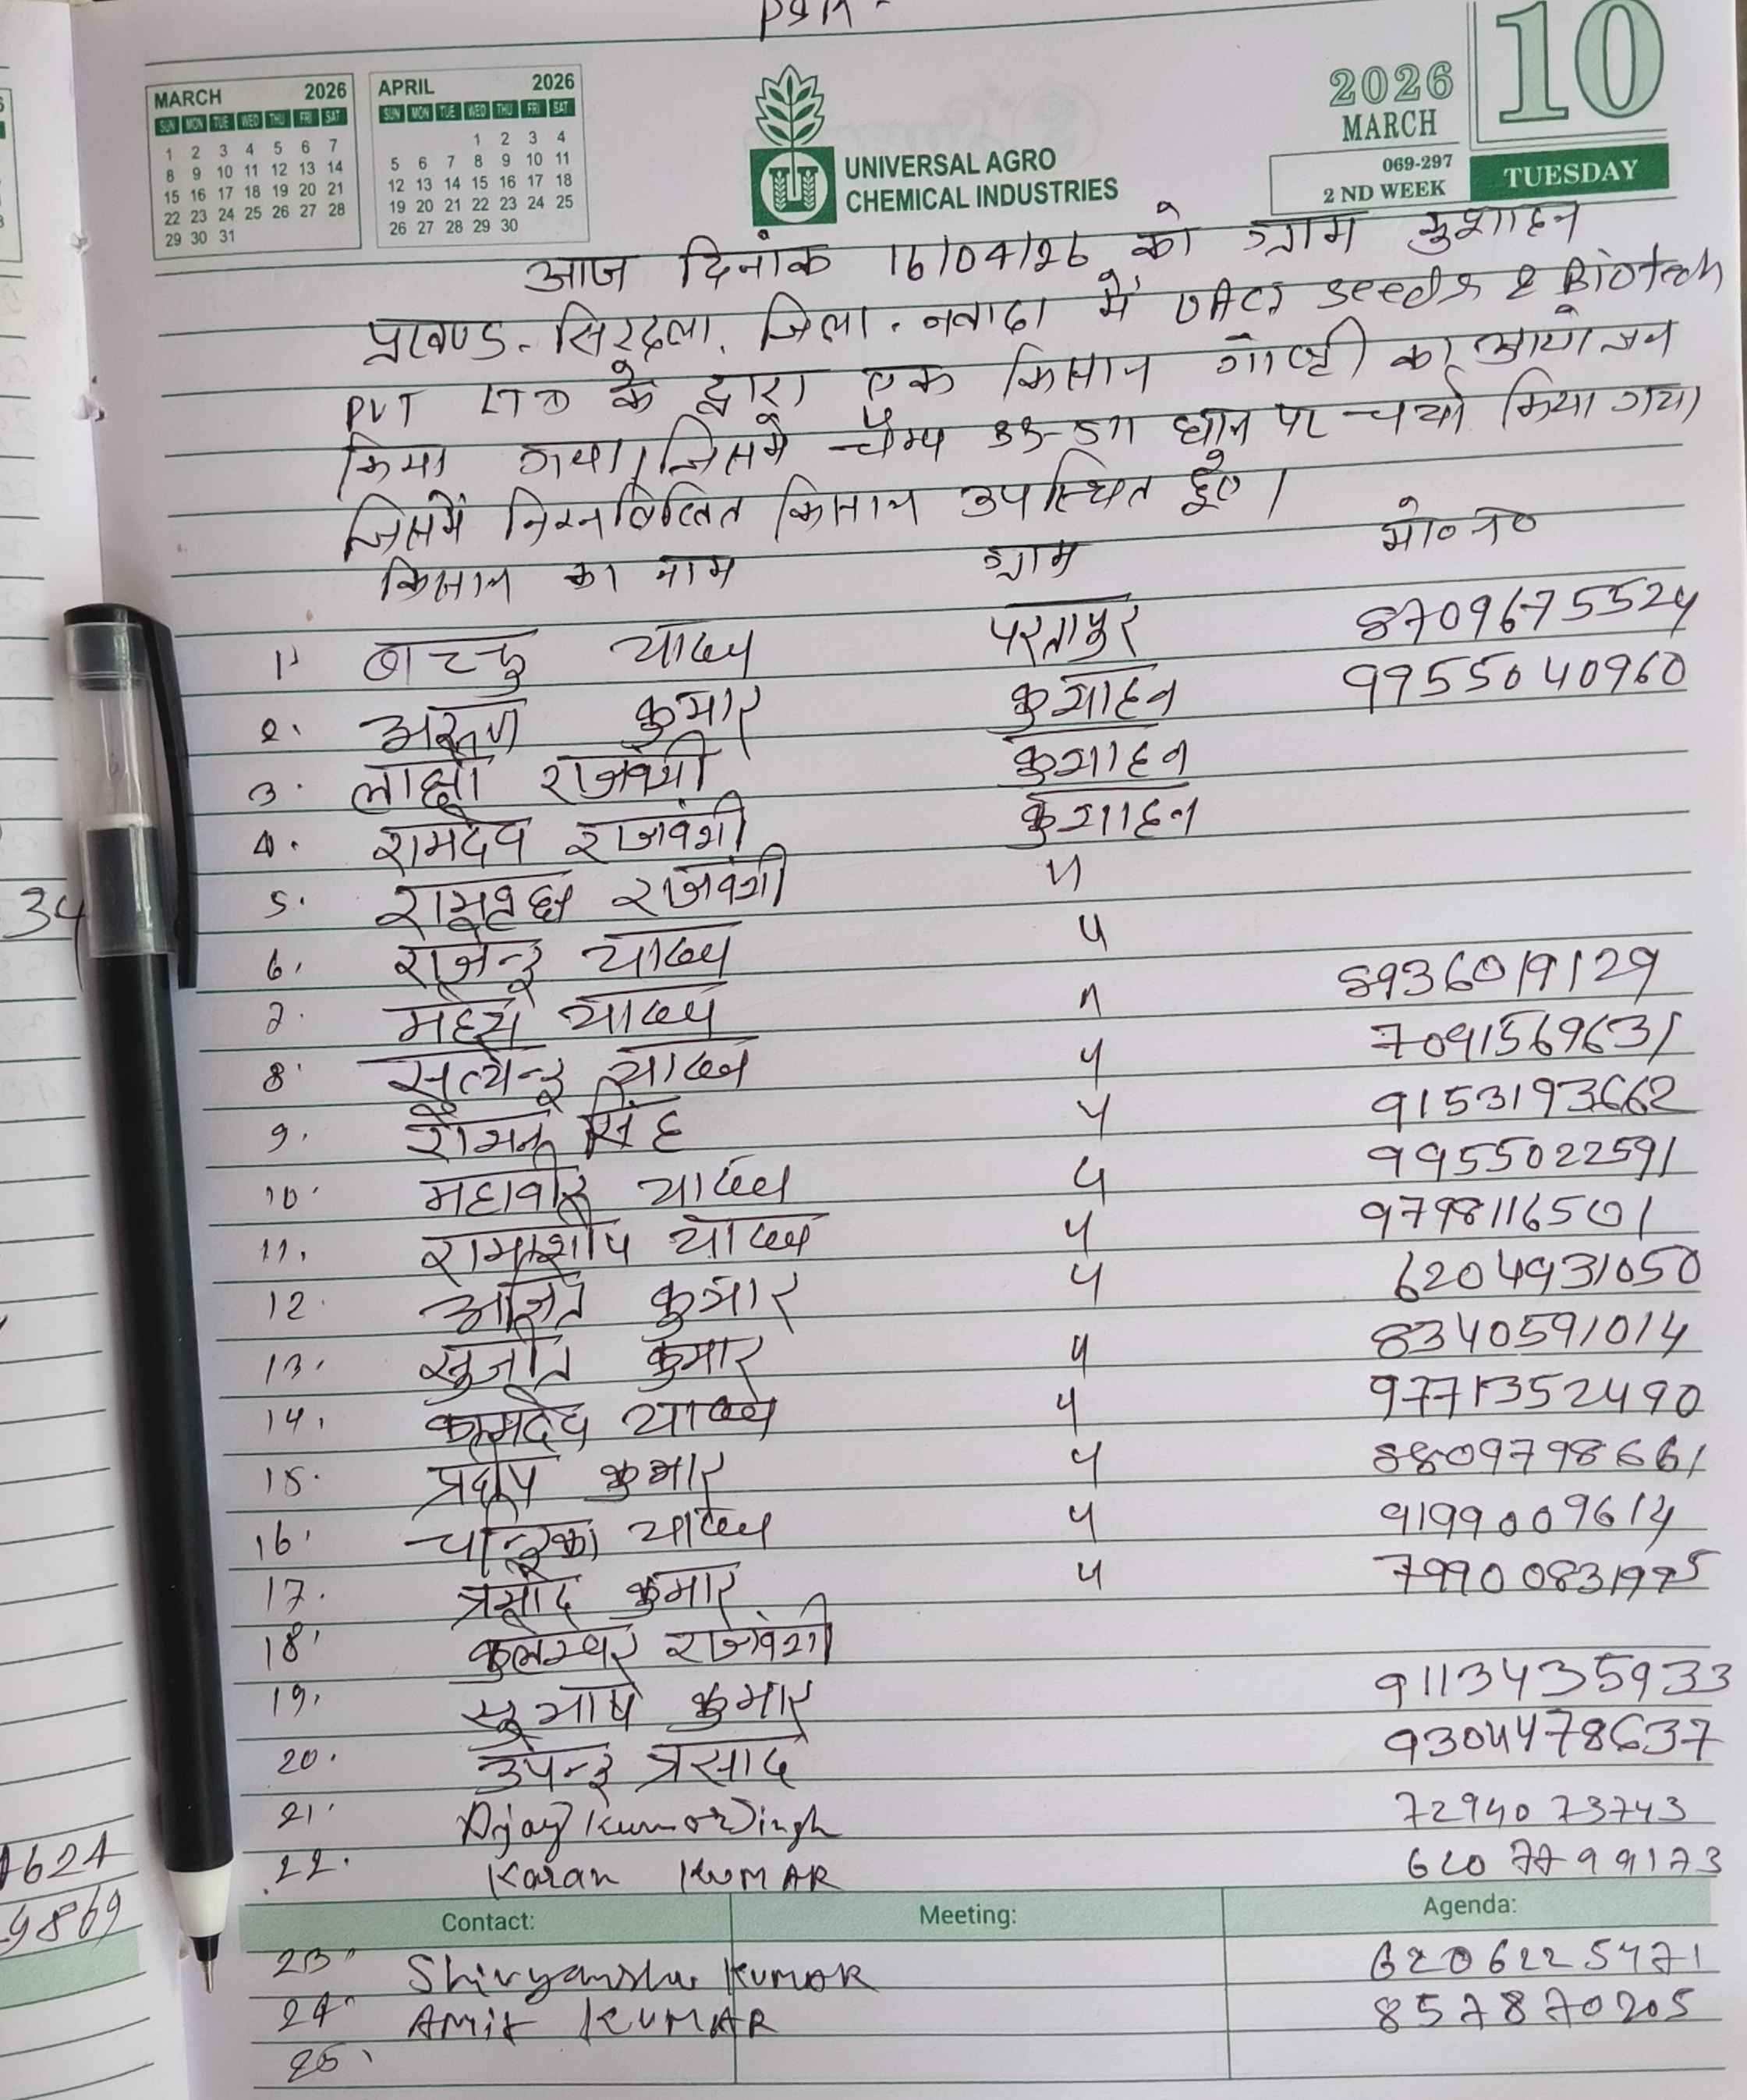 MARCH 2026
SUN MON TUE WED THU FRI SAT
1 2 3 4 5 6 7
8 9 10 11 12 13 14
15 16 17 18 19 20 21
22 23 24 25 26 27 28
29 30 31
APRIL 2026
SUN MON TUE WED THU FRI SAT
1 2 3 4
5 6 7 8 9 10 11
12 13 14 15 16 17 18
19 20 21 22 23 24 25
26 27 28 29 30
UNIVERSAL AGRO
CHEMICAL INDUSTRIES
2026
MARCH
10
069-297
2 ND WEEK
TUESDAY
आज दिनांक 16/04/26 को ग्राम कुशाहन
प्रखण्ड- सिरदला, जिला- नवादा में UACI Seeds & Biotech
PVT LTD के द्वारा एक किसान गोष्ठी का आयोजन
किया गया। जिसमें चैम्प 33-511 धान पर चर्चा किया गया
जिसमें निम्नलिखित किसान उपस्थित हुए।
किसान का नाम ग्राम मो०न०
1. बाच्चु यादव परतापुर 8709675524
2. अरुण कुमार कुशाहन 9955040960
3. राजवंशी कुशाहन
4. रामदेव राजवंशी कुशाहन
5. रामवृक्ष राजवंशी "
6. राजेन्द्र यादव "
7. महेश यादव " 8936019129
8. सत्येन्द्र यादव " 7091569631
9. सिंह " 9153193662
10. महावीर यादव " 9955022591
11. रामाशीष यादव " 9798116501
12. अजित कुमार " 6204931050
13. सुजीत कुमार " 8340591014
14. कामदेव यादव " 9771352490
15. प्रदीप कुमार " 8809798661
16. चन्द्रिका यादव " 9199009614
17. प्रमोद कुमार " 79900831995
18. कुलेश्वर राजवंशी
19. सुभाष कुमार 9113435933
20. उपेन्द्र प्रसाद 9304478637
21. Ajay Kumar Singh 7294073743
22. Karan KUMAR 6207799173
Contact: Meeting: Agenda:
23. Shivyanshu KUMAR 6206225471
24. AMit KUMAR 8578870205
25.
34
1624
9869